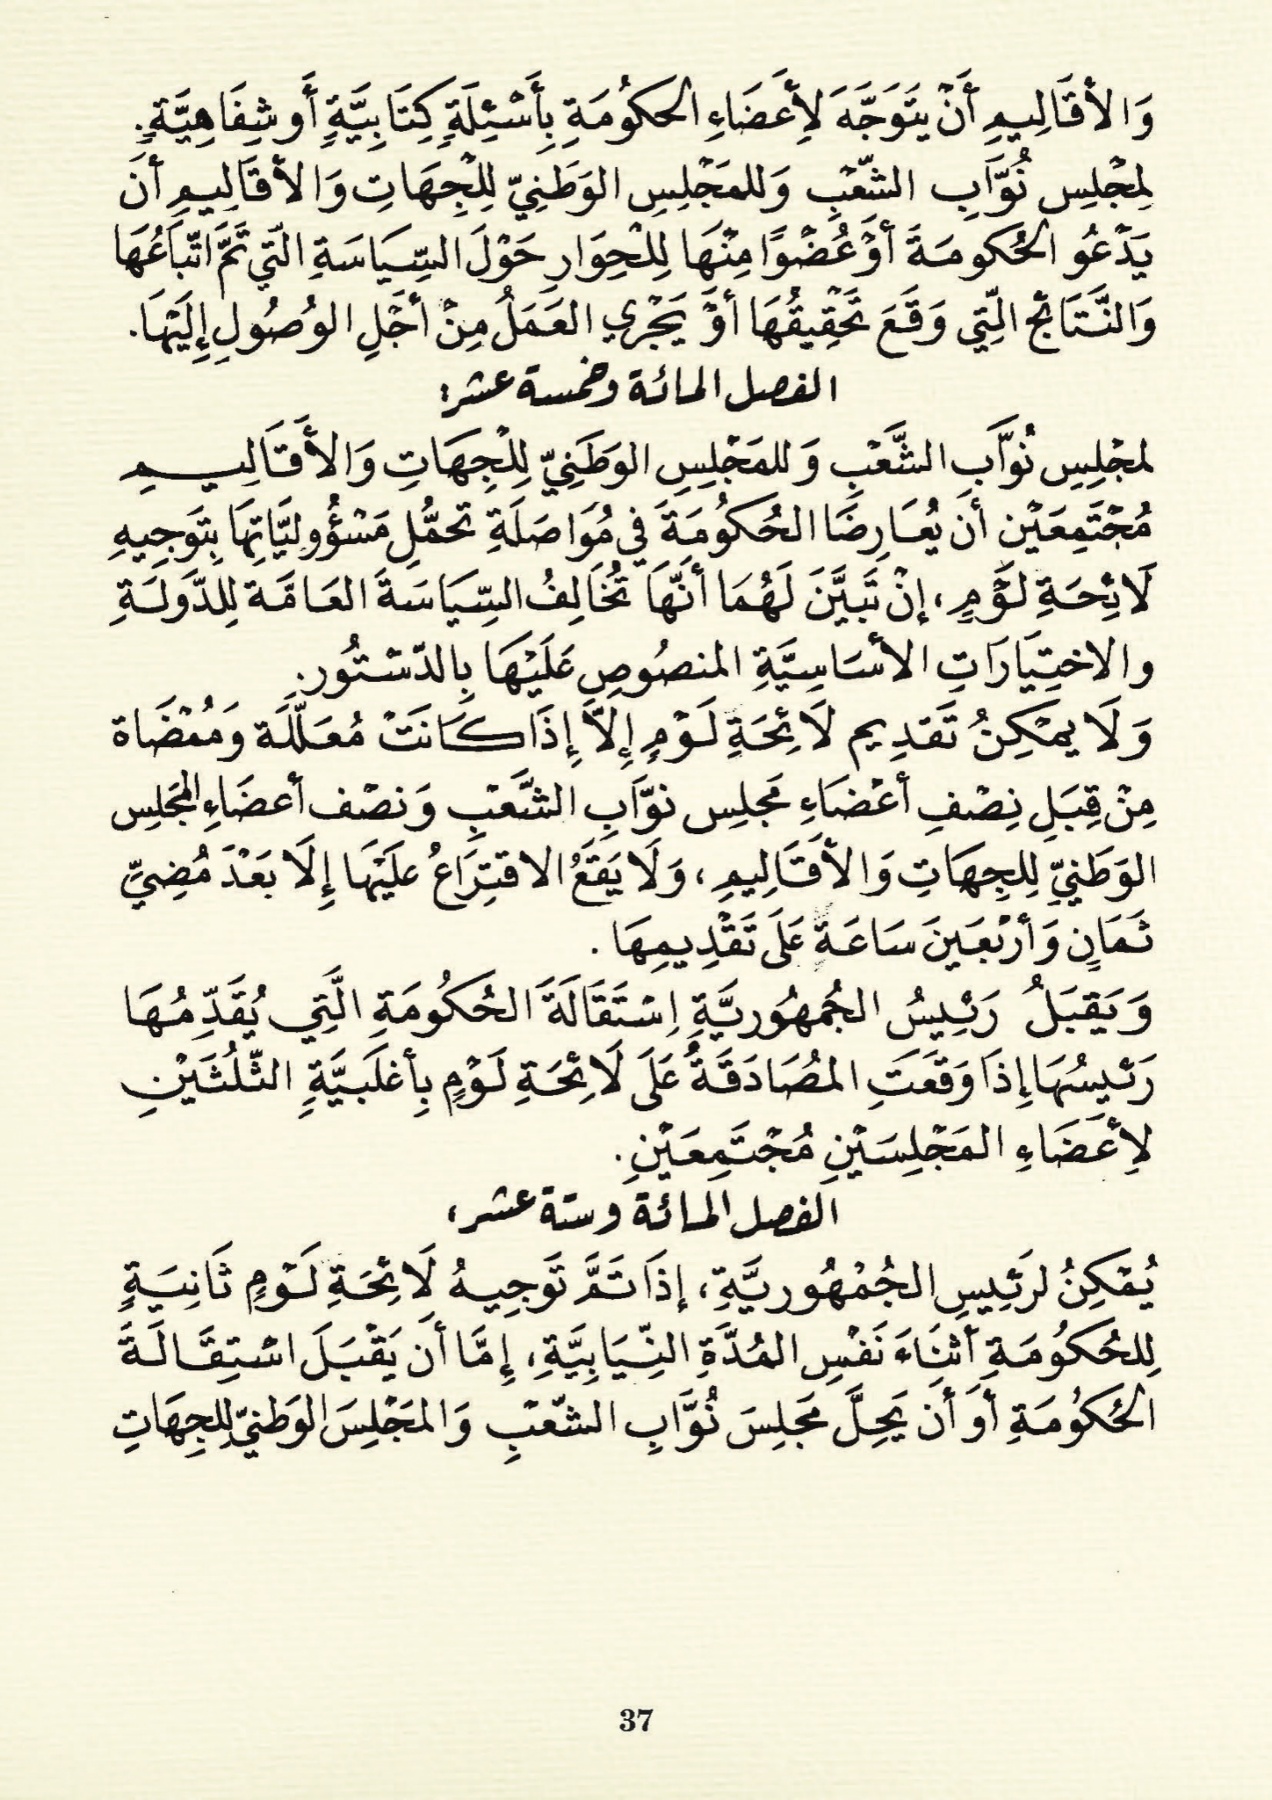 وَالأقَالِيمِ أَنْ يَتَوَجَّهَ لأِعَضَاءِ الحكُومَةِ بِأَسْئِلَةٍ كِتَابِيَّةٍ أَو شِفَاهِيَّةٍ.
لِمجْلِس نُوَّابِ الشّعْبِ وَللمَجْلِسِ الوَطَنِيّ لِلْجِهَاتِ وَالأقَالِيمِ أنَ
يَدْعُو الحُكومَةَ أوْعُضْوًا مِنْهَا لِلْحِوَارِ حَوْلَ السِّيَاسَةِ الّتَي تَمَّ اتّبَاعُهَا
وَالنَّتَائج الّتِي وَقَعَ تَحْقِيقُهَا أوْ يَجْرِي العَمَلُ مِنْ أجْلِ الوُصُولِ إِلَيْهَا.
الفصل المائة وخمسة عشر:
لمجْلِسِ نُوَّابِ الشَّعْبِ وَللمَجْلِسِ الوَطَنِيّ لِلْجِهَاتِ وَالأَقَالِيمِ
مُجْتَمِعَيْنِ أنَ يُعَارِضَا الحُكُومَةَ في مُوَاصَلَةِ تحمُّلِ مَسْؤُولِيَّاتِهَا بِتَوجِيهِ
لَائِحَةِ لَوْمٍ، إنْ تَبَيَّنَ لَهُمَا أنَّهَا تُخَالِفُ السِّيَاسَةَ العَامَّة لِلدَّولَةِ
والاختِيَارَاتِ الأسَاسِيَّةِ المنصُوصِ عَلَيْهَا بِالدّسْتُور.
وَلَا يمْكِنُ تَقدِيم لَائِحَةِ لَوْمٍ إِلاَّ إِذَا كَانَتْ مُعَلَّلَة وَمُمْضَاة
مِنْ قِبَلِ نِصْفِ أعْضَاءِ مَجلِس نوَّابِ الشَّعْبِ وَنصْف أعضَاءِ المجَلِس
الوَطَنِيِّ لِلجِهَاتِ وَالأقَالِيمِ، وَلَا يَقَعُ الاقتِرَاعُ علَيْهَا إِلَا بَعْدَ مُضِيِّ
ثَمَانٍ وَأرْبَعَينَ سَاعَةً عَلَى تَقْدِيمِهَا.
وَيَقبَلُ رَئِيسُ الجُمهُوريَّةِ اِسْتَقَالَةَ الحُكُومَةِ الَّتِي يُقَدِّمُهَا
رَئيسُهَا إِذَا وَقَعَتِ المصُادَقَةُ عَلَى لَائِحَةِ لَوْمٍ بِأغلَبيَّةِ الثّلُثَيْنِ
لأِعَضَاءِ المَجْلِسَيْنِ مُجْتَمِعَيْنِ.
الفصل المائة وستة عشر،
يُمْكِنُ لرَئِيسِ الجُمْهُوريَّةِ، إذَا تَمَّ تَوجِيهُ لَائِحَةِ لَوْمٍ ثَانِيَةٍ
لِلحُكُومَةِ أثنَاءَ نَفْسِ المُدَّةِ النِّيَابِيَّةِ، إِمَّا أن يَقْبَلَ اسْتِقَالَةَ
الحُكُومَةِ أوَ أَن يَحِلَّ مَجَلِسَ نُوَّابِ الشّعْبِ وَالمجَلِسَ الوَطنيّ لِلجِهَاتِ
37